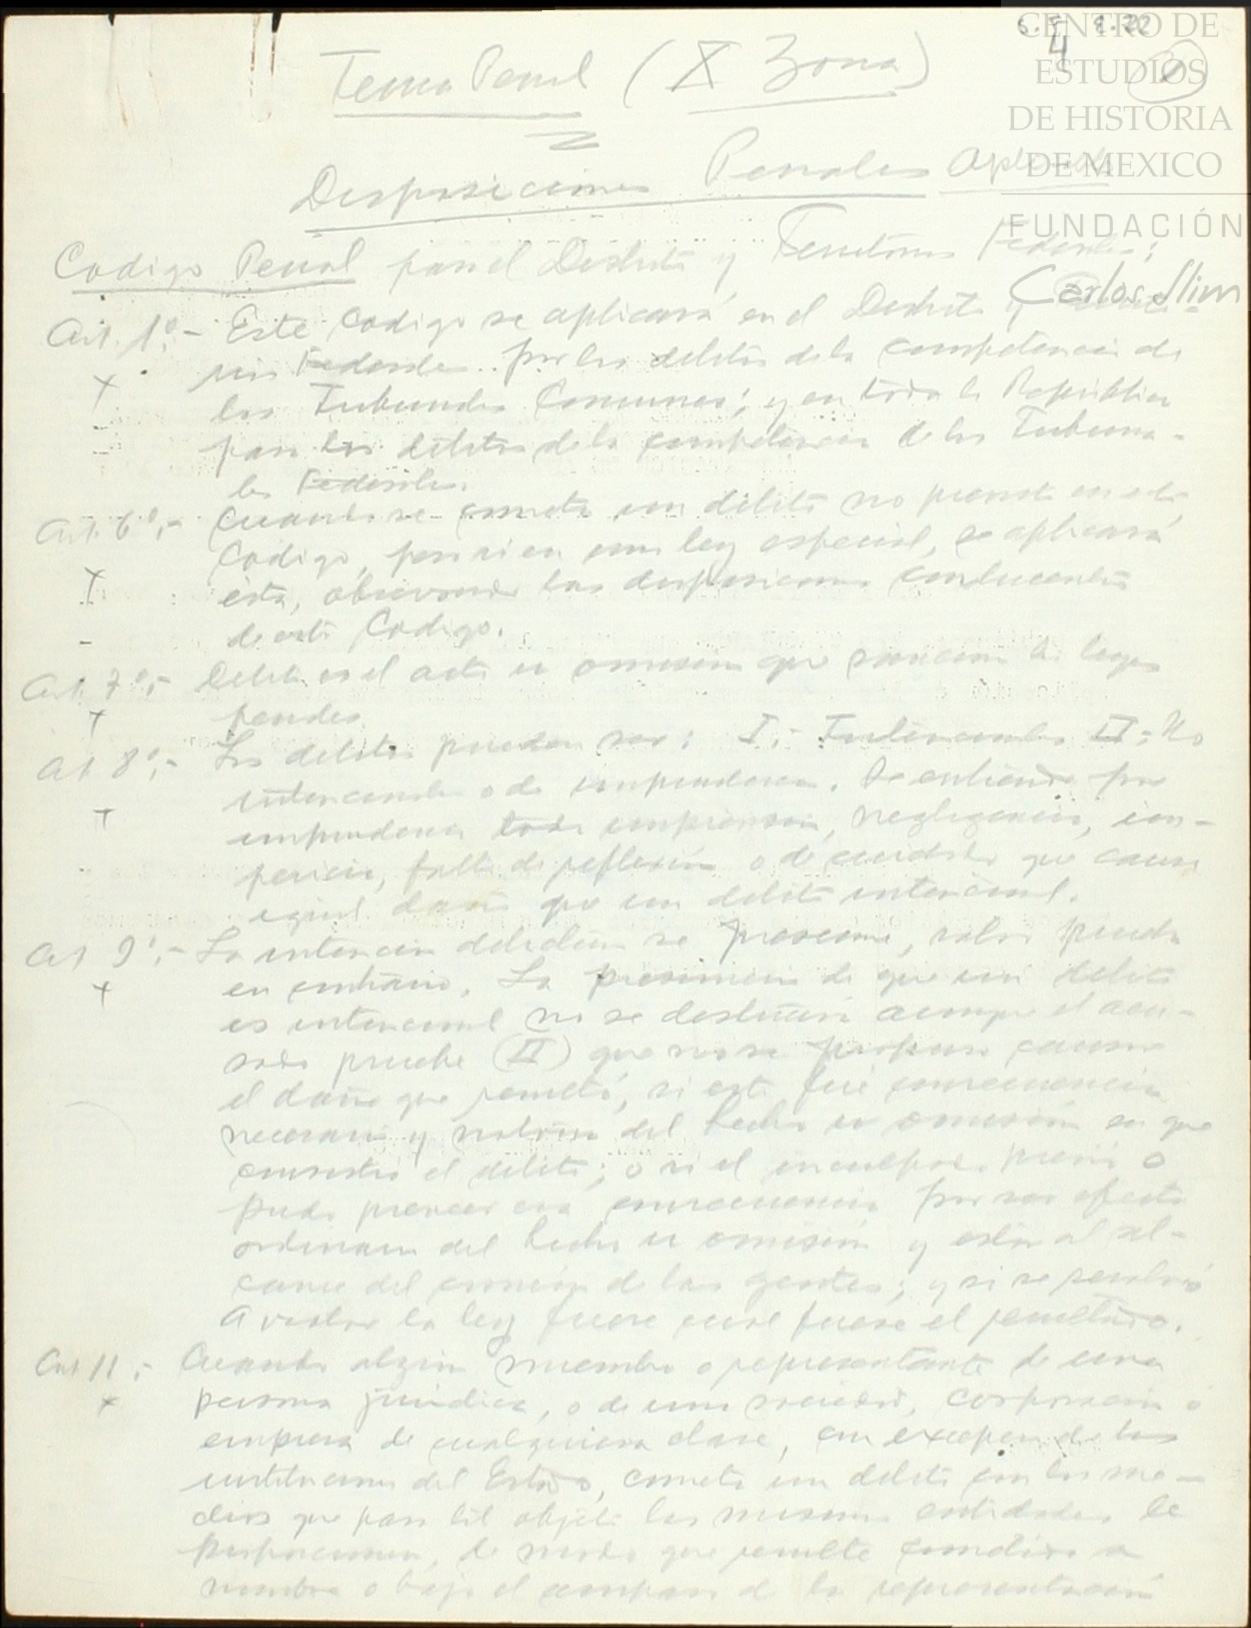 CENTRO DE
ESTUDIOS
DE HISTORIA
DE MEXICO
FUNDACIÓN
Carlos Slim
4
Tema Penal (X Zona)
Disposiciones Penales
Codigo Penal para el Distrito y Territorios Federales;
Art. 1º.- Este Codigo se aplicará en el Distrito y
rios Federales por los delitos de la competencia de
los Tribunales Comunes; y en toda la República
para los delitos de la competencia de los Tribuna-
les Federales.
Art. 6º.- Cuando se cometa un delito no previsto en este
Codigo, pero si en una ley especial, se aplicará
ésta, observando las disposiciones conducentes
de este Codigo.
Art. 7º.- Delito es el acto u omision que sancionan las leyes
penales.
Art. 8º.- Los delitos pueden ser: I.- Intencionales II.- No
intencionales o de imprudencia. Se entiende por
imprudencia toda imprevision, negligencia, im-
pericia, falta de reflexión o de cuidado que cause
igual daño que un delito intencional.
Art 9º.- La intencion delictuosa se presume, salvo prueba
en contrario. La presuncion de que un delito
es intencional no se destruirá aunque el acu-
sado pruebe (II) que no se propuso causar
el daño que resultó, si este fué consecuencia
necesaria y notoria del hecho u omisión en que
consistió el delito; o si el inculpado previó o
pudo preveer esa consecuencia por ser efecto
ordinario del hecho u omisión y estar al al-
cance del común de las gentes; y si se resolvió
a violar la ley fuere cual fuese el resultado.
Art 11.- Cuando algún miembro o representante de una
persona jurídica, o de una sociedad, corporacion o
empresa de cualquiera clase, con excepcion de las
instituciones del Estado, cometa un delito con los me-
dios que para tal objeto las mismas entidades le
proporcionen, de modo que resulte cometido a
nombre o bajo el amparo de la representación